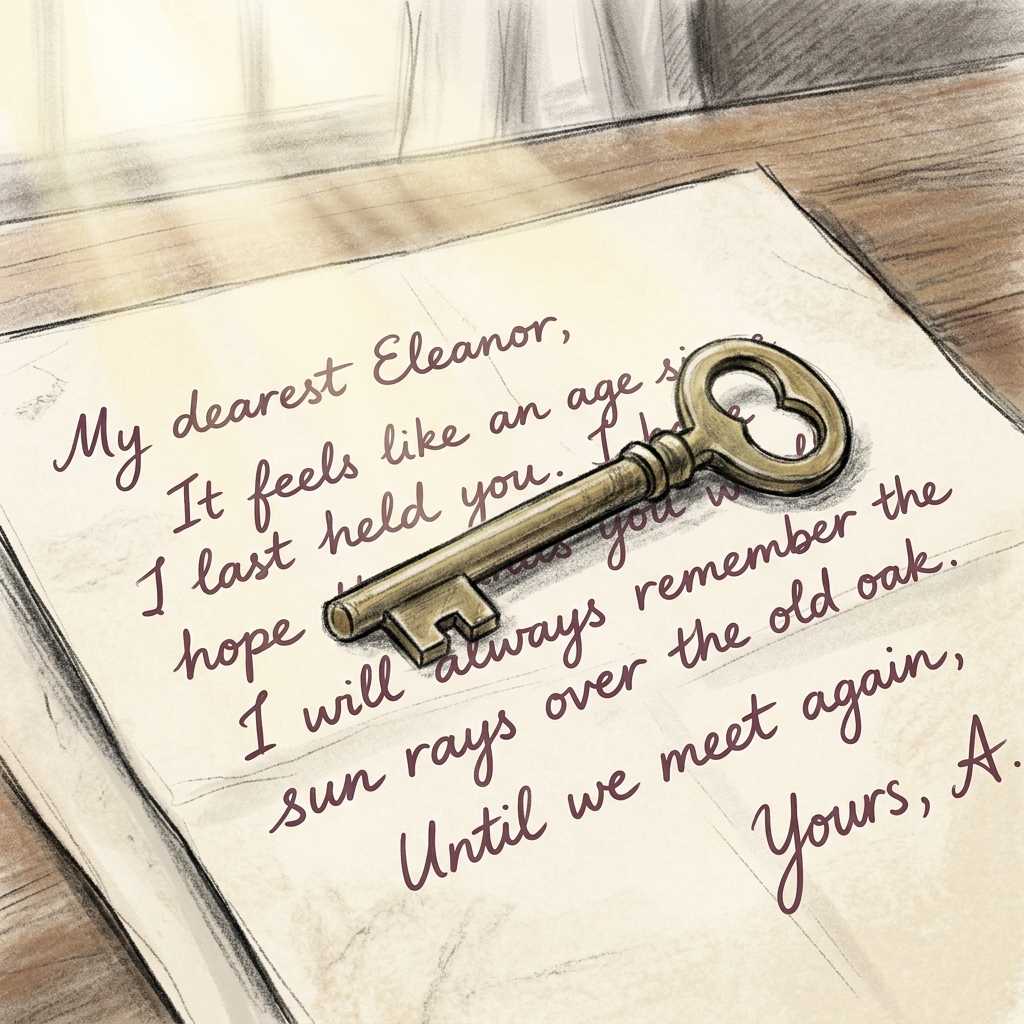 My dearest Eleanor,
It feels like an age
I last held you. I
hope you
I will always remember the
sun rays over the old oak.
Until we meet again,
Yours, A.